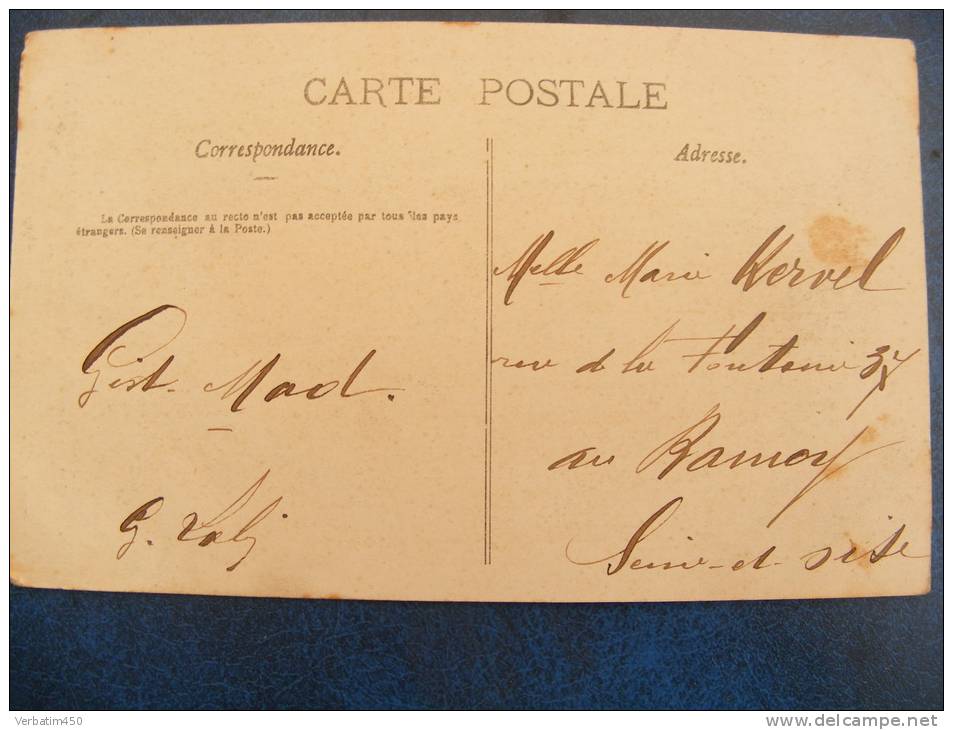 CARTE POSTALE
Correspondance.
La Correspondance au recto n'est pas acceptée par tous les pays
étrangers. (Se renseigner à la Poste.)
Mad.
G.
Adresse.
Melle Marie Kervel
rue de la Fontaine 37
au
Seine-et-Oise
Verbatim450
www.delcampe.net